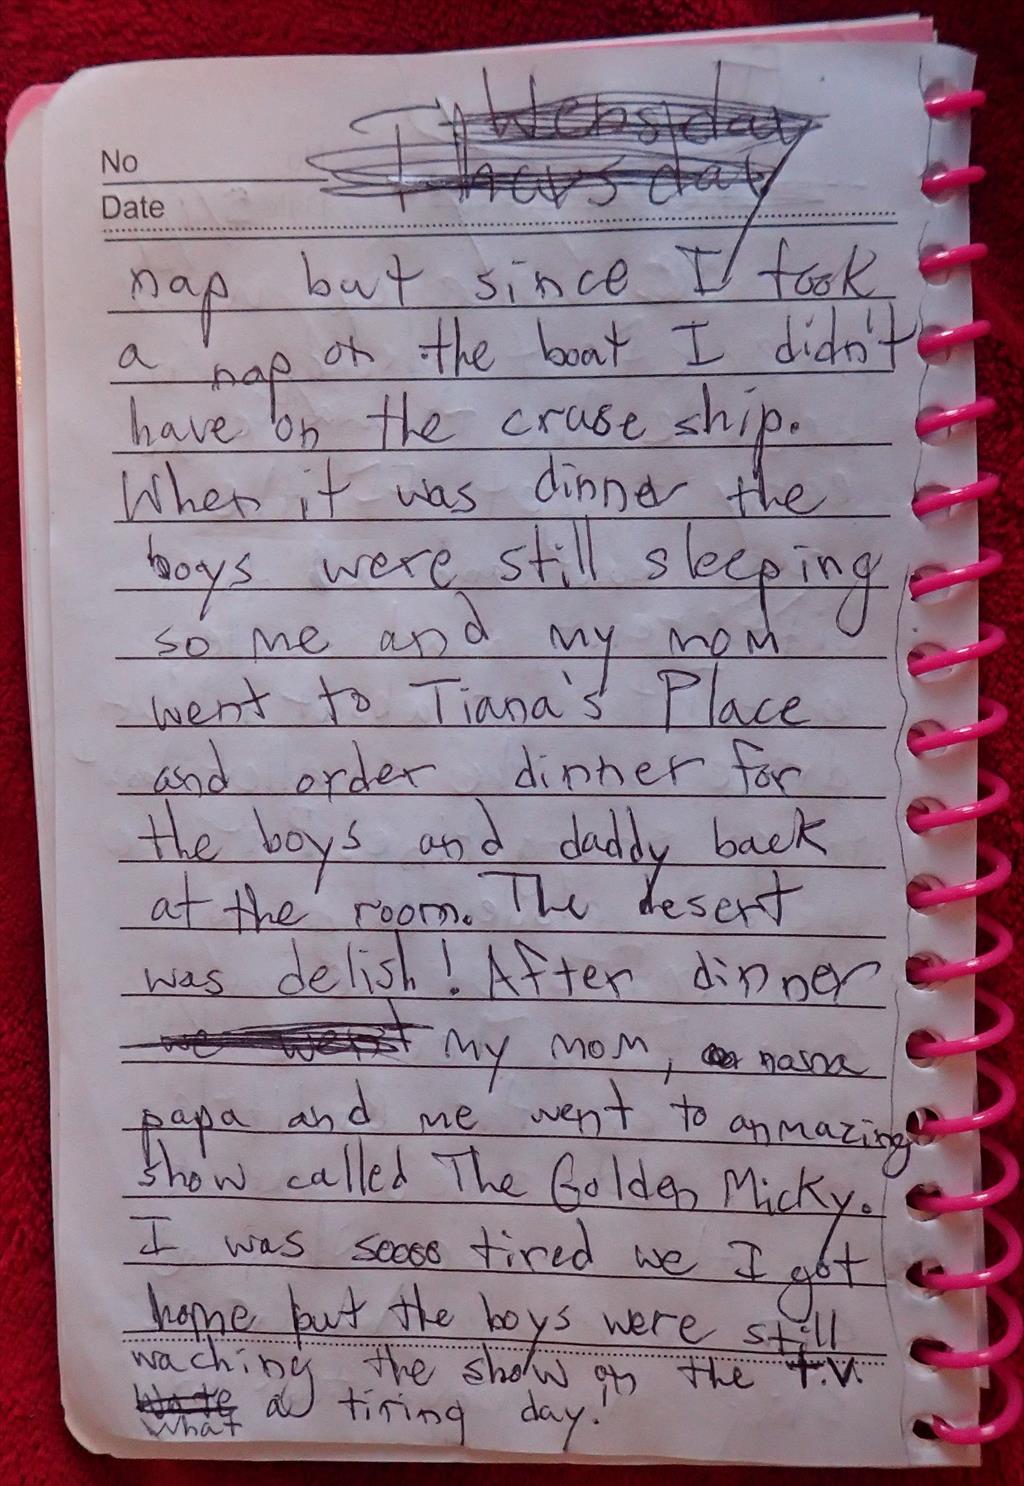 Websday
No
Thursday
Date
nap but since I took
a nap on the boat I didn't
have on the cruse ship.
When it was dinner the
boys were still sleeping
so me and my mom
went to Tiana's Place
and order dinner for
the boys and daddy back
at the room. The desert
was delish! After dinner
we went my mom, nana
papa and me went to anmazing
show called The Golden Micky.
I was soooo tired we I got
home but the boys were still
waching the show on the t.v.
What a tiring day!